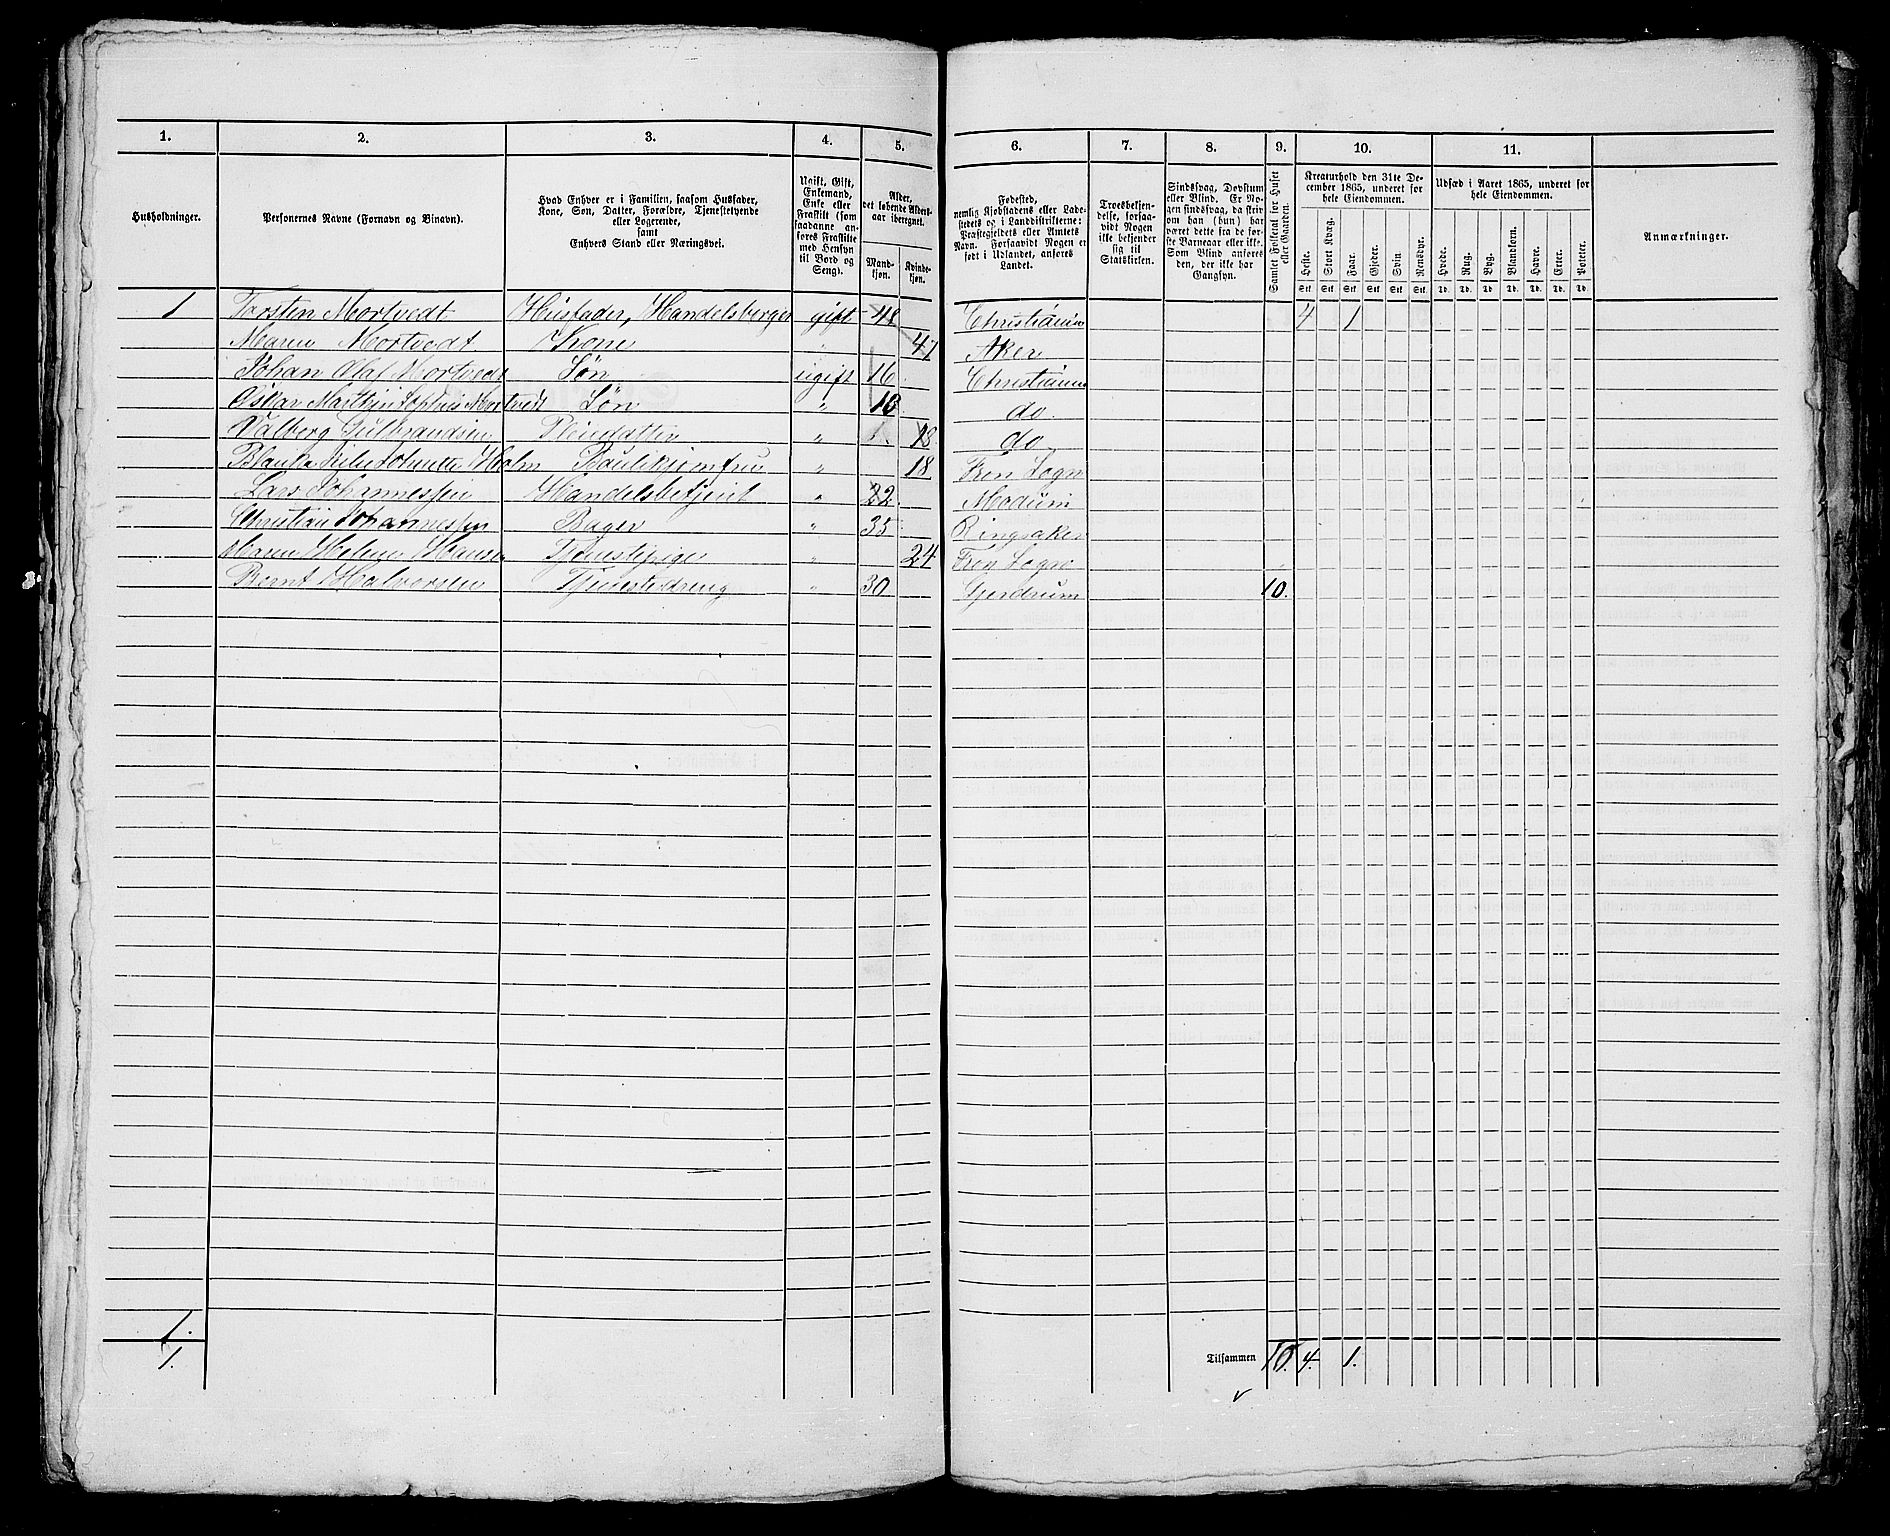 1. 2. 3. 4. 5. 6. 7. 8. 9. 10. 11.
Husholdninger.
Personernes Navne (Fornavn og Binavn).
Hvad Enhver er i Familien, saasom Husfader,
Kone, Søn, Datter, Forældre, Tjenestetyende
eller Logerende,
samt
Enhvers Stand eller Næringsvei.
Ugift, Gift,
Enkemand,
Enke eller
Fraskilt (som
saadanne an-
føres Fraskilte
med Hensyn
til Bord og
Seng).
Alder,
det løbende Alders-
aar iberegnet.
Mand-
kjøn.
Kvinde-
kjøn.
Fødested,
nemlig Kjøbstadens eller Lade-
stedets og i Landdistrikterne:
Præstegjeldets eller Amtets
Navn. Forsaavidt Nogen er
født i Udlandet, anføres
Landet.
Troesbekjen-
delse, forsaa-
vidt Nogen
ikke bekjender
sig til
Statskirken.
Sindssvag, Døvstum
eller Blind. Er No-
gen sindssvag, da skriv
om han (hun) har
været dette fra de før-
ste Barneaar eller ikke.
Som Blind anføres
den, der ikke har
Gangsyn.
Samlet Folketal for Huset
eller Gaarden.
Kreaturhold den 31te De-
cember 1865, underet for
hele Eiendommen.
Heste. Stort Kvæg. Faar. Gjeder. Svin Rensdyr.
Stk Stk Stk Stk Stk Stk
Udsæd i Aaret 1865, underet for
hele Eiendommen.
Hvede. Rug. Byg. Blandkorn. Havre. Erter. Poteter.
Td. Td. Td. Td. Td. Td. Td.
Anmærkninger.
1 Torsten Mortvedt Husfader, Handelsberger gift 48 Christiania 4 1
Maren Mortvedt Kone 47 Aker
Johan Olaf Mortvedt Søn ugift 16 Christiania
Oskar Marthin Sophus Mortvedt Søn " 13 do.
Valberg Gulbrandsen Pleiedatter " 18 do
Blanka Holm " 18 Fron Sogn
Lars Johannessen Handelsbetjent " 22 Modum
Christian Johannessen Bager " 35 Ringsaker
Maren Helene Hansen Tjenestepige " 24 Fron Sogn
Bernt Halvorsen Tjenestedreng " 30 Gjerdrum 10.
1.
1.
Tilsammen 10. 4. 1.